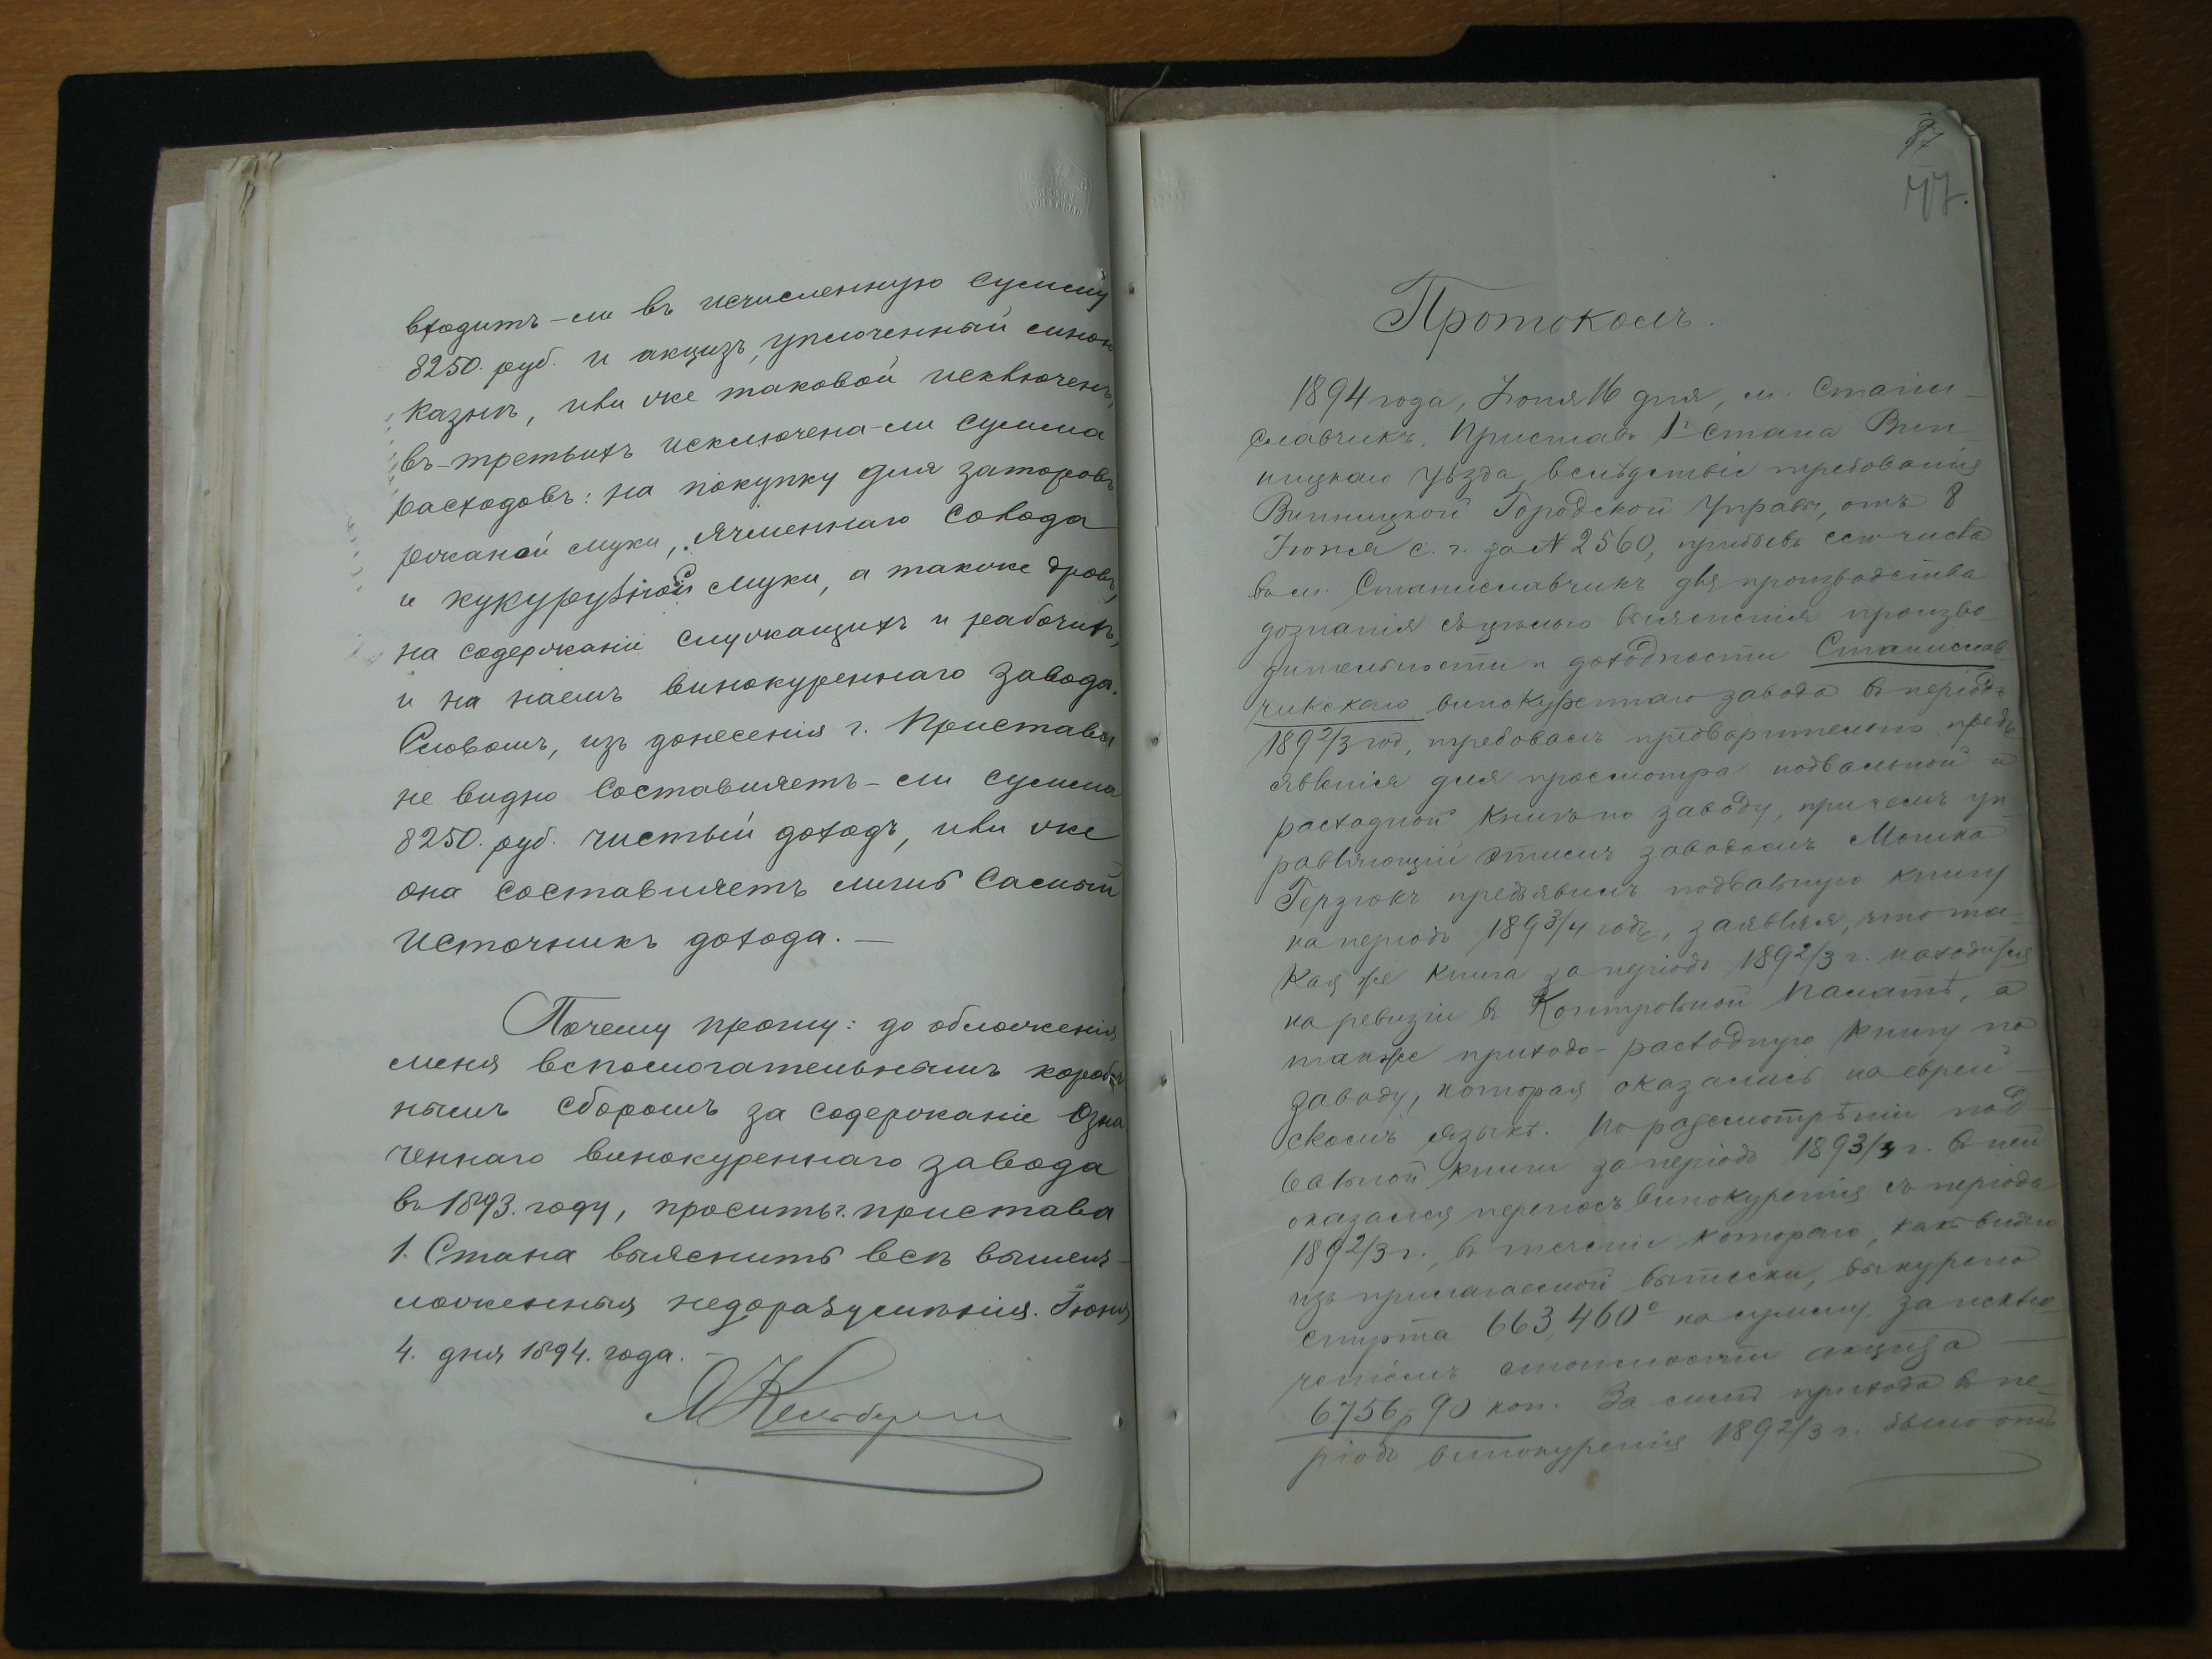 входитъ-ли въ исчисленную сумму
8250. руб. и акцизъ, уплоченный мною
казнѣ, или же таковой исключенъ,
въ-третьихъ исключена-ли сумма
расходовъ: на покупку для заторовъ
ржаной муки, ячменнаго солода
и кукурузной муки, а также дровъ,
на содержаніи служащихъ и рабочихъ,
и на наемъ винокуреннаго завода.
Словомъ, изъ донесенія г. Пристава
не видно составляетъ-ли сумма
8250. руб. чистый доходъ, или же
она составляетъ лишь самый
источникъ дохода. —
Почему прошу: до обложенія
меня вспомогательнымъ короб
нымъ сборомъ за содержаніе озна
ченнаго винокуреннаго завода
въ 1893. году, просить г. пристава
1. Стана выяснить всѣ вышеиз-
ложенныя недоразумѣнія. Іюня
4. дня 1894. года. —
87
47.
Протоколъ.
1894 года, Іюня 16 дня, м. Стани-
славчикъ. Приставъ 1го Стана Вин-
ницкаго уѣзда, вслѣдствіе требованія
Винницкой Городской Управы, отъ 8
Іюня с. г. за № 2560, прибывъ сего числа
въ м. Станиславчикъ для производства
дознанія съ цѣлью выясненія произво
дительности и доходности Станислав
чикскаго винокуреннаго завода въ періодъ
1892/3 год, требовалъ предварительно предъ
явленія для просмотра подвальной и
расходной книгъ по заводу, причемъ уп
равляющій этимъ заводомъ Мошко
Герзюкъ предъявилъ подвальную книгу
на періодъ 1893/4 годъ, заявляя, что та-
кая же книга за періодъ 1892/3 г. находится
на ревизіи въ Контрольной Палатѣ, а
также приходо-расходную книгу по
заводу, которая оказалась на еврей-
скомъ языкѣ. По разсмотрѣніи под-
вальной книги за періодъ 1893/4 г. въ ней
оказался переносъ винокуренія съ періода
1892/3 г., въ теченіи котораго, какъ видно
изъ прилагаемой выписки, выкурено
спирта 663,460° на сумму, за исклю-
ченіемъ стоимости акциза
6756 р 90 коп. За симъ прихода въ пе-
ріодъ винокуренія 1892/3 г. было отъ